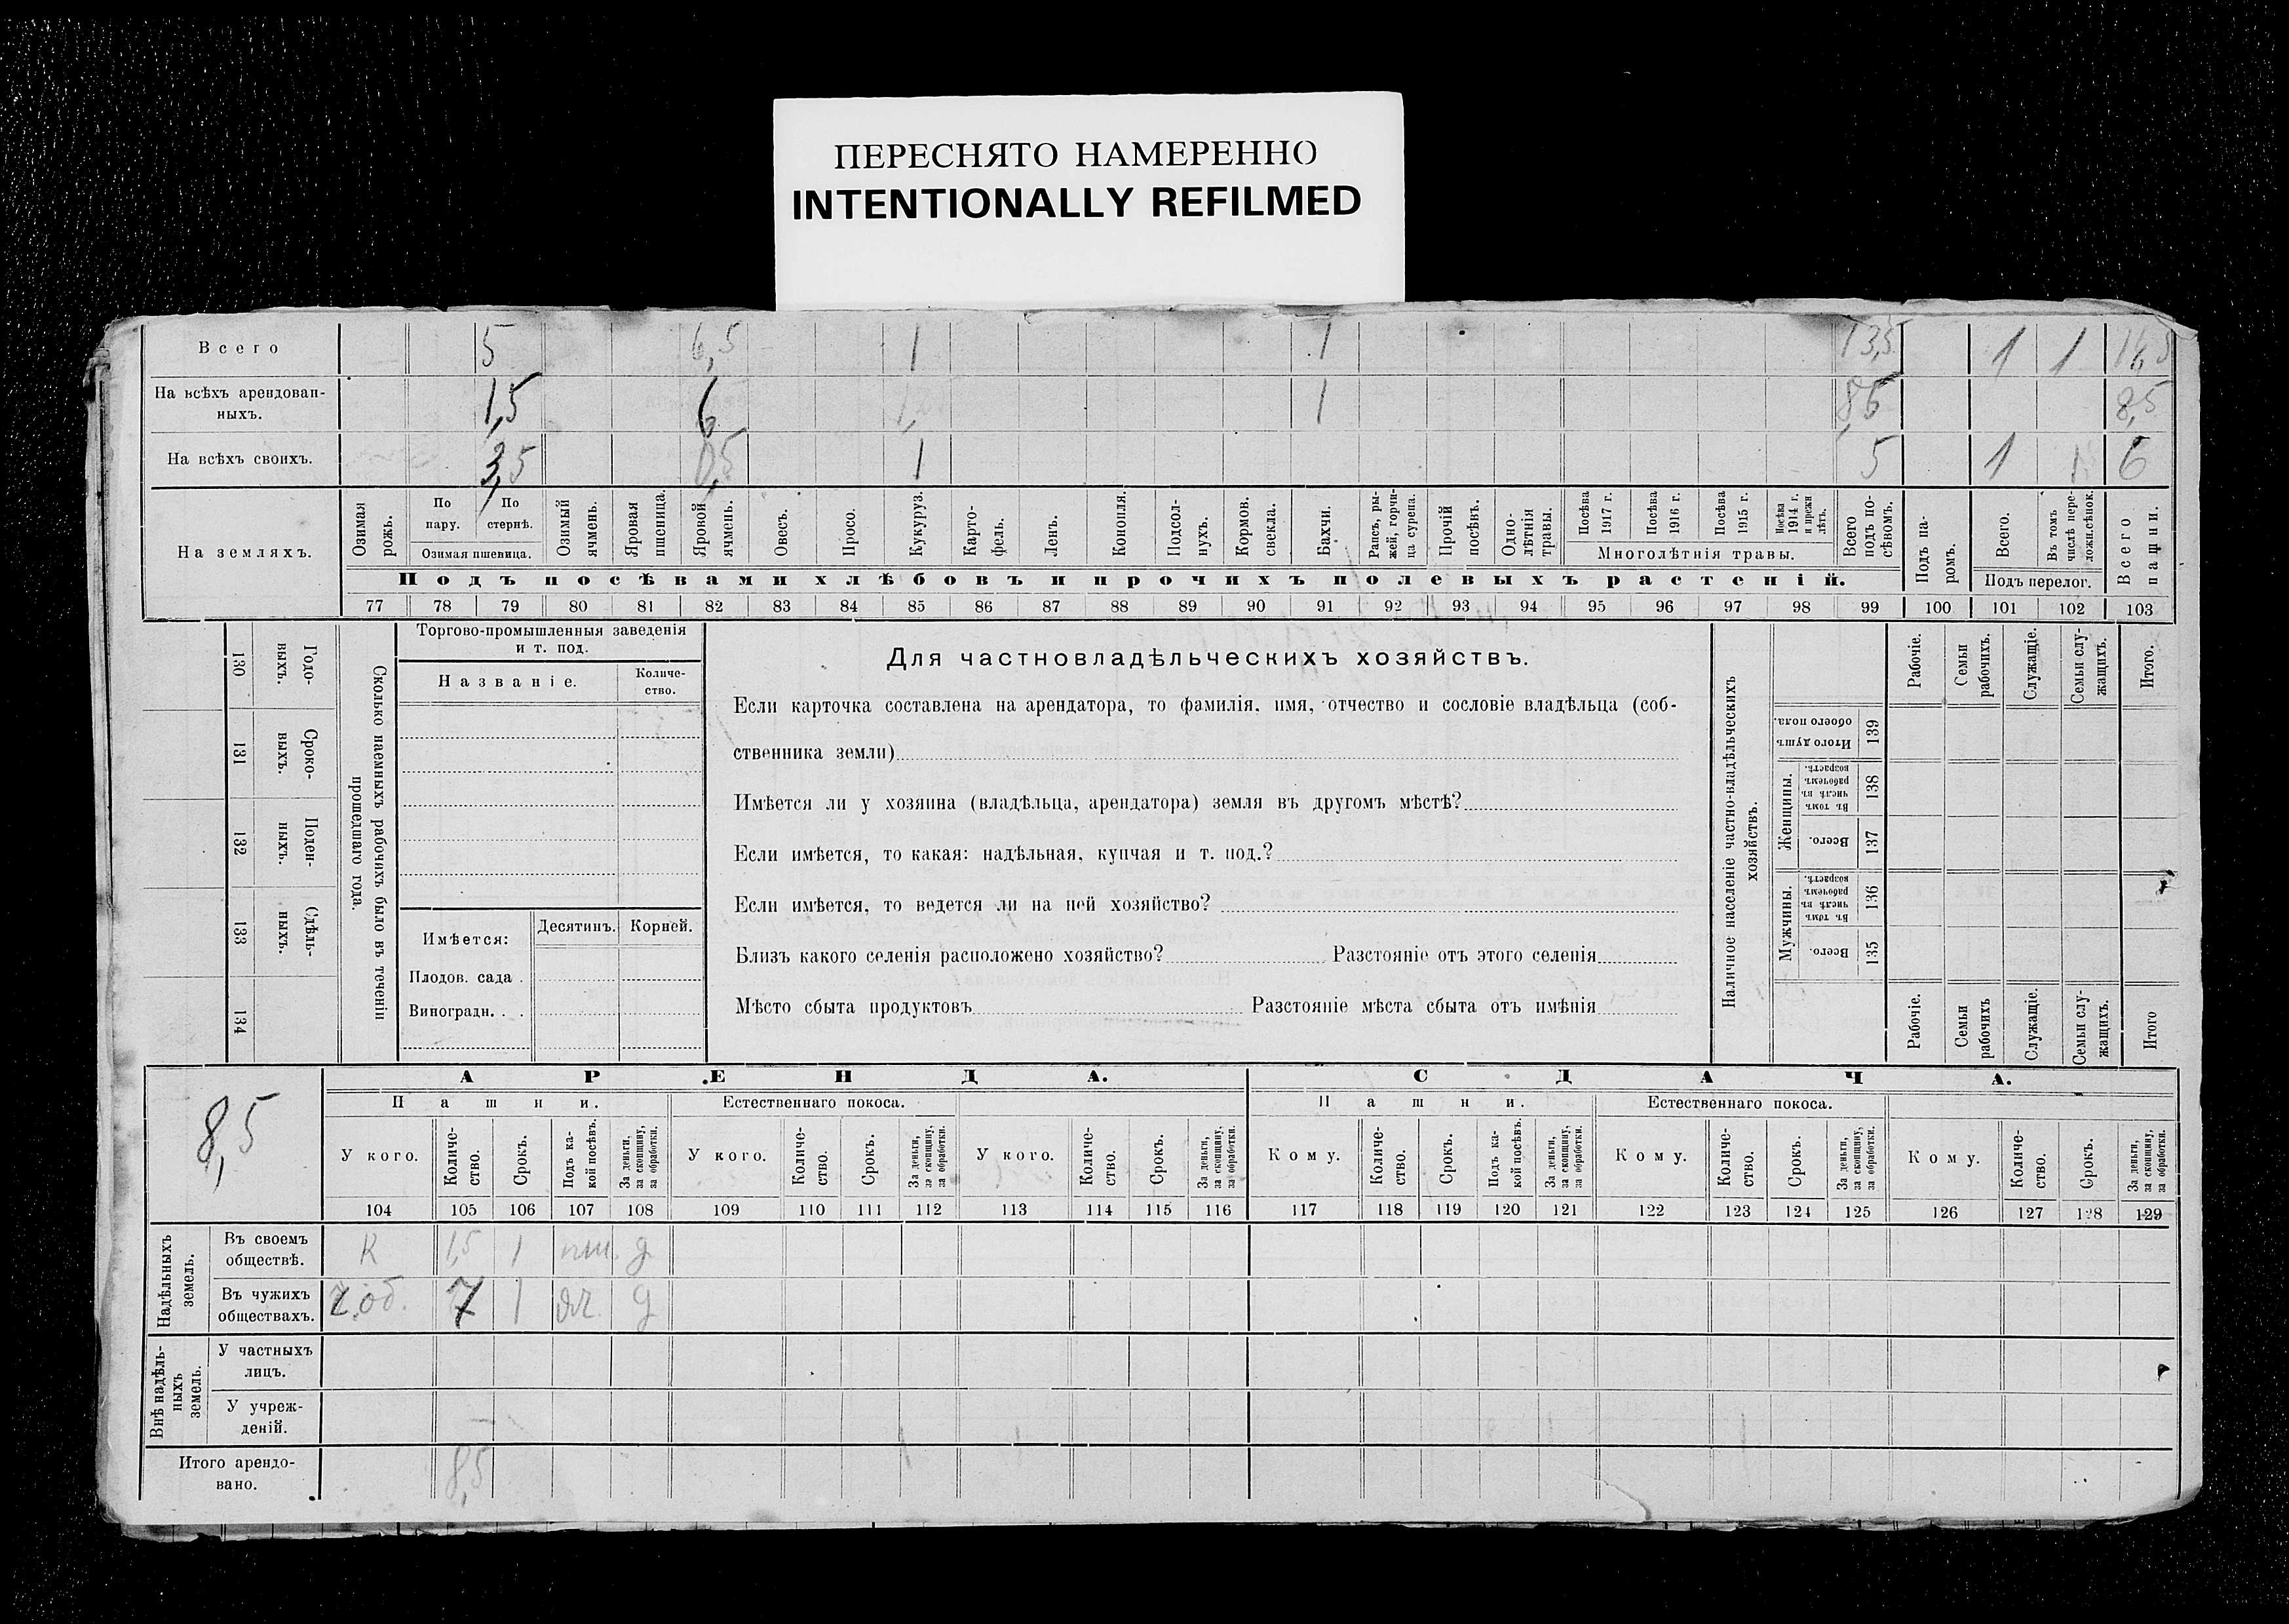 ПЕРЕСНЯТО НАМЕРЕННО
INTENTIONALLY REFILMED
Всего 5 6,5 1 1 13,5 1 1 14,5
На всѣхъ арендован-
ныхъ. 1,5 6 1 8,5 8,5
На всѣхъ своихъ. 3,5 0,5 1 5 1 1 6
На земляхъ.
Озимая рожь.
По пару.
По стернѣ.
Озимая пшеница.
Озимый ячмень.
Яровая пшеница.
Яровой ячмень.
Овесъ.
Просо.
Кукуруз.
Карто-
фель.
Ленъ.
Конопля.
Подсол-
нухъ.
Кормов.
свекла.
Бахчи.
Рапсъ, ры-
жей, горчи-
ца сурепа.
Прочій
посѣвъ.
Одно-
лѣтнія
травы.
Посѣва
1917 г.
Посѣва
1916 г.
Посѣва
1915 г.
Посѣва
1914 г.
и прежн
лѣтъ.
Многолѣтнія травы.
Всего
подъ по-
сѣвомъ.
Подъ па-
ромъ.
Всего.
Въ томъ
числѣ пере-
ложн.сѣнок.
Подъ перелог.
Всего
пашни.
Подъ посѣвами хлѣбовъ и прочихъ полевыхъ растеній.
77 78 79 80 81 82 83 84 85 86 87 88 89 90 91 92 93 94 95 96 97 98 99 100 101 102 103
130
Годо-
выхъ.
131
Сроко-
выхъ.
132
Поден-
ныхъ.
133
Сдѣль-
ныхъ.
134
Сколько наемныхъ рабочихъ было въ теченіи
прошедшаго года.
Торгово-промышленныя заведенія
и т. под.
Названіе.
Количе-
ство.
Имѣется: Десятинъ. Корней.
Плодов. сада .
Виноградн. . .
Для частновладѣльческихъ хозяйствъ.
Если карточка составлена на арендатора, то фамилія, имя, отчество и сословіе владѣльца (соб-
ственника земли)
Имѣется ли у хозяина (владѣльца, арендатора) земля въ другомъ мѣстѣ?
Если имѣется, то какая: надѣльная, купчая и т. под.?
Если имѣется, то ведется ли на ней хозяйство?
Близъ какого селенія расположено хозяйство? Разстояніе отъ этого селенія
Мѣсто сбыта продуктовъ Разстояніе мѣста сбыта отъ имѣнія
Наличное населеніе частно-владѣльческихъ
хозяйствъ.
Рабочіе.
Семьи
рабочихъ.
Служащіе.
Семьи слу-
жащихъ.
Итого.
Итого душъ
обоего пола.
139
Женщины.
Въ томъ
числѣ въ
рабочемъ
возрастѣ.
138
Всего.
137
Мужчины.
Въ томъ
числѣ въ
рабочемъ
возрастѣ.
136
Всего.
135
Рабочіе.
Семьи
рабочихъ
Служащіе.
Семьи слу-
жащихъ.
Итого
8,5
АРЕНДА. СДАЧА.
Пашни. Естественнаго покоса. Пашни. Естественнаго покоса.
У кого.
Количе-
ство.
Срокъ.
Подъ ка-
кой посѣвъ.
За деньги,
за скопщину,
за обработки.
У кого.
Количе-
ство.
Срокъ.
За деньги,
за скопщину,
за обработки.
У кого.
Количе-
ство.
Срокъ.
За деньги,
за скопщину,
за обработки.
Кому.
Количе-
ство.
Срокъ.
Подъ ка-
кой посѣвъ.
За деньги,
за скопщину,
за обработки.
Кому.
Количе-
ство.
Срокъ.
За деньги,
за скопщину,
за обработки.
Кому.
Количе-
ство.
Срокъ.
За деньги,
за скопщину,
за обработки.
104 105 106 107 108 109 110 111 112 113 114 115 116 117 118 119 120 121 122 123 124 125 126 127 128 129
Надѣльныхъ
земель.
Въ своемъ
обществѣ. К 1,5 1 пш. д
Въ чужихъ
обществахъ. об. 7 1 яч. д
Внѣ надѣль-
ныхъ
земель.
У частныхъ
лицъ.
У учреж-
деній.
Итого арендо-
вано. 8,5